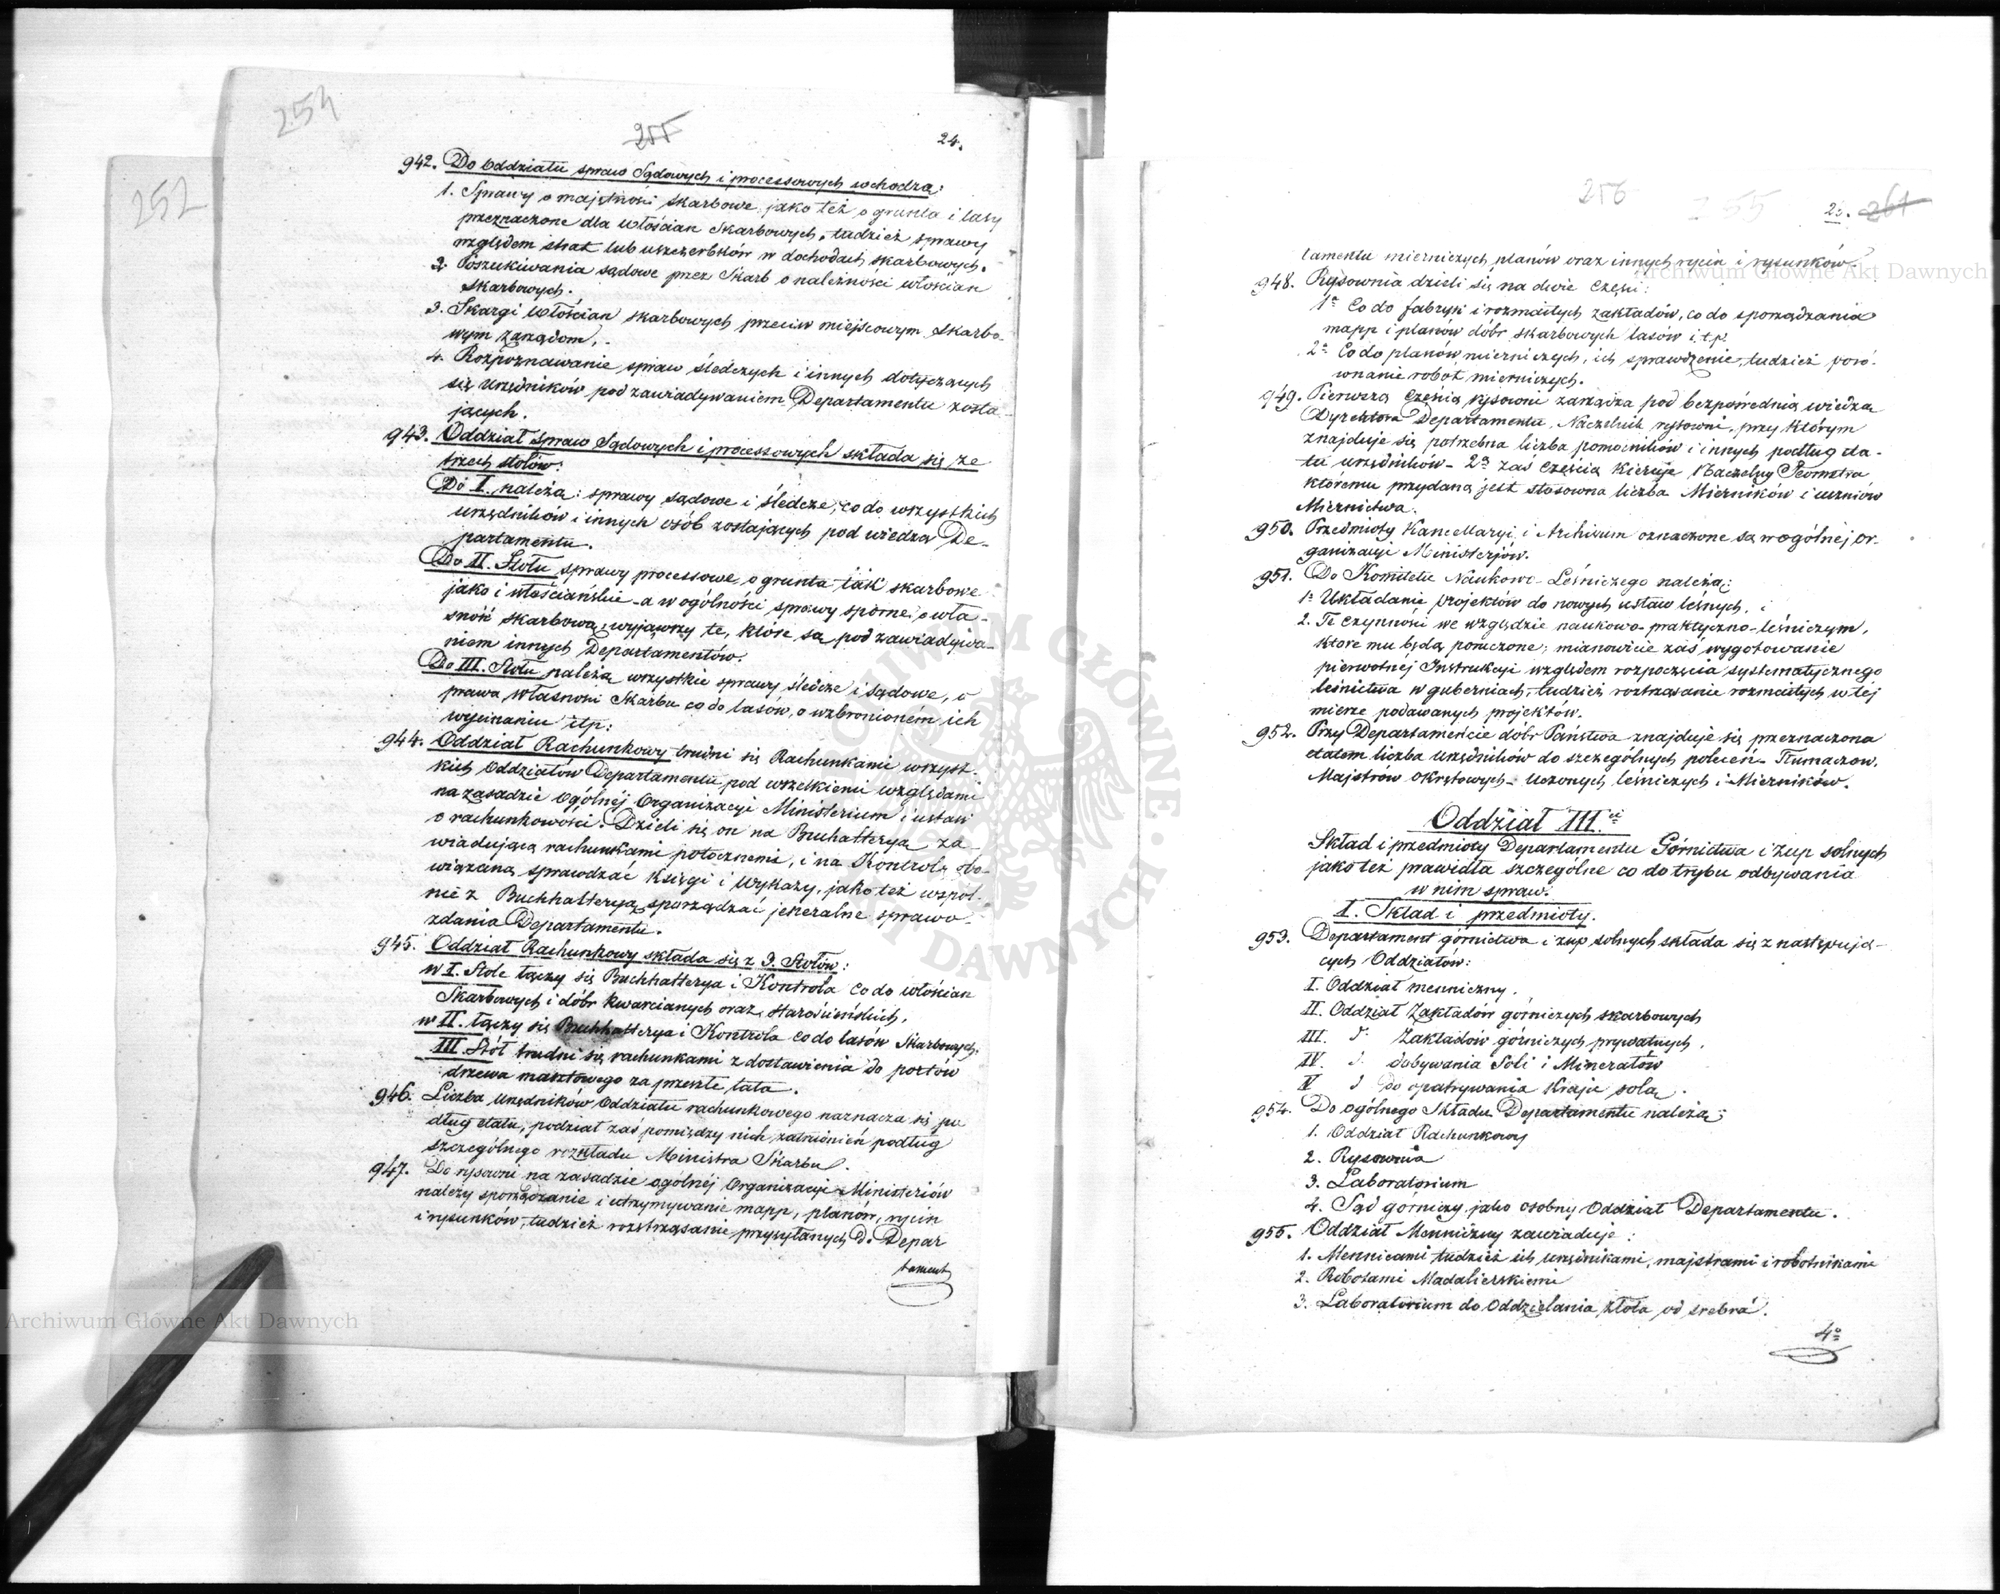 254
255
24.
942. Do Oddziału spraw Sądowych i processowych wchodzą:
1. Sprawy o majętności skarbowe, jako też o grunta i lasy
przeznaczone dla Włościan Skarbowych, tudzież sprawy
względem strat lub uszczerbków w dochodach skarbowych.
2. Poszukiwania sądowe przez Skarb o należności włościan
Skarbowych.
3. Skargi Włościan skarbowych przeciw miejscowym skarbo-
wym zarządom.
4. Rozpoznawanie spraw śledczych i innych dotyczących
się urzędników pod zawiadywaniem Departamentu zosta-
jących.
943. Oddział spraw Sądowych i processowych składa się ze
trzech stołów:
Do I. należą: sprawy sądowe i śledcze, co do wszystkich
urzędników i innych osób zostających pod wiedzą De-
partamentu.
Do II. Stołu sprawy processowe, o grunta tak skarbowe
jako i włościańskie a w ogólności sprawy sporne o wła-
sność skarbową, wyjąwszy te, które są pod zawiadywa-
niem innych Departamentów.
Do III. Stołu należą wszystkie sprawy śledcze i sądowe, o
prawa własności Skarbu co do lasów, o wzbronioném ich
wycinaniu itp:
944. Oddział Rachunkowy trudni się Rachunkami wszyst-
kich Oddziałów Departamentu pod wszelkiemi względami
na zasadzie Ogólnéj Organizacyi Ministerium i ustaw
o rachunkowości. Dzieli się on na Buchalteryą za-
wiadującą rachunkami potocznemi, i na Kontrolę obo-
wiązaną sprawdzać Księgi i Wykazy, jako też wspól-
nie z Buchhalteryą sporządzać jeneralne sprawo-
zdania Departamentu.
945. Oddział Rachunkowy składa się z 3. Stołów:
w I. Stole łączy się Buchhalterya i Kontrola co do włościan
Skarbowych i dóbr kwarcianych oraz starościńskich,
w II. łączy się Buchhalterya i Kontrola co do lasów Skarbowych;
III. Stół trudni się rachunkami z dostawienia do portów
drzewa masztowego za przeszłe lata.
946. Liczba urzędników Oddziału rachunkowego naznacza się po
dług etatu, podział zaś pomiędzy nich zatrudnień podług
szczególnego rozkładu Ministra Skarbu.
947. Do rysowni na zasadzie ogólnéj Organizacyi Ministeriów
należy sporządzanie i utrzymywanie mapp, planów, rycin
i rysunków, tudzież rozstrząsanie przysyłanych do Depar
tament
252
256
255
25. 261
tamentu mierniczych planów oraz innych rycin i rysunków.
948. Rysownia dzieli się na dwie Części:
1º Co do fabryk i rozmaitych zakładów, co do sporządzania
mapp i planów dóbr skarbowych lasów i t.p.
2º Co do planów mierniczych, ich sprawdzenie, tudzież poró-
wnanie robot mierniczych.
949. Pierwszą Częścią rysowni zarządza pod bezpośrednią wiedzą
Dyrektora Departamentu, Naczelnik rysowni, przy którym
znajduje się potrzebna liczba pomocników i innych podług eta-
tu urzędników – 2ą zaś Częścią kieruje Naczelny Jeometra
któremu przydaną jest stosowna liczba Mierników i uczniów
Miernictwa.
950. Przedmioty Kancellaryi i Archiwum oznaczone są w ogólnéj or-
ganizacyi Ministerjów.
951. Do Komitetu Naukowo-Leśniczego należą:
1º Układanie projektów do nowych ustaw leśnych, i
2. Te czynności we względzie naukowo-praktyczno-leśniczym,
które mu będą poruczone; mianowicie zaś wygotowanie
pierwotnej Instrukcyi względem rozpoczęcia systematycznego
leśnictwa w guberniach, tudzież roztrząsanie rozmaitych w téj
mierze podawanych projektów.
952. Przy Departamencie dóbr Państwa znajduje się przeznaczona
etatem liczba urzędników do szczególnych poleceń – Tłumaczów,
Majstrów okrętowych – Uczonych leśniczych i Mierników.
Oddział III.ci
Skład i przedmioty Departamentu Górnictwa i żup solnych
jako też prawidła szczególne co do trybu odbywania
w nim spraw.
I. Skład i przedmioty.
953. Departament górnictwa i żup solnych składa się z następują-
cych Oddziałów:
I. Oddział menniczny.
II. Oddział Zakładów górniczych skarbowych
III. d Zakładów górniczych prywatnych.
IV. d. dobywania Soli i Minerałów
V d Do opatrywania Kraju solą.
954. Do ogólnego składu Departamentu należą:
1. Oddział Rachunkowy
2. Rysownia
3. Laboratorium
4. Sąd górniczy jako osobny Oddział Departamentu.
955. Oddział Menniczny zawiaduje:
1. Mennicami tudzież ich urzędnikami, majstrami i robotnikami
2. Robotami Medalierskiemi
3. Laboratorium do Oddzielania złota od srebra.
4º
Archiwum Główne Akt Dawnych
Archiwum Główne Akt Dawnych
ARCHIWUM GŁÓWNE AKT DAWNYCH